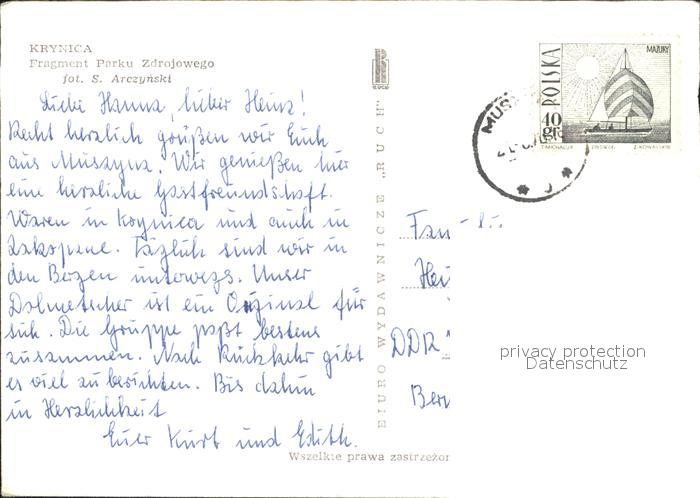 KRYNICA
Fragment Parku Zdrojowego
fot. S. Arczyński
Liebe Hanna, lieber Heinz!
Recht herzlich grüßen wir Euch
aus Muszyna. Wir genießen hier
eine herzliche Gastfreundschaft.
Waren in Krynica und auch in
Zakopane. Täglich sind wir in
den Bergen unterwegs. Unser
Dolmetscher ist ein Original für
sich. Die Gruppe paßt bestens
zusammen. Nach Rückkehr gibt
es viel zu berichten. Bis dahin
in Herzlichkeit
Euer Kurt und Edith.
BIURO WYDAWNICZE „RUCH"
RUCH
Wszelkie prawa zastrzeżon
POLSKA
MAZURY
40
gr
T. MICHALUK
Z. KOWALSKI
MUS
Fam
Hei
DDR
Ber
privacy protection
Datenschutz